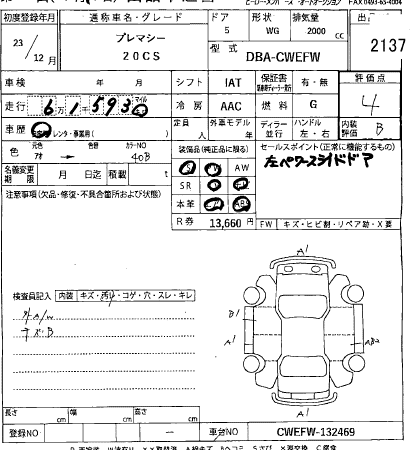 初度登録 通称車名・グレード ドア 形状 排気量
23/12月 プレマシー 20CS 5 WG 2000 cc
型式 DBA-CWEFW
2137
車検 年 月 シフト IAT 保証書 有・無 評価点
走行 6万1千593 マイル 冷房 AAC 燃料 G 4
車歴 レンタ・事業用( ) 定員 人 外車モデル 年 ディーラー 並行 ハンドル 左・右 内装評価 B
色 元色 色替 カラーNO 40B
装備品(純正品に限る) セールスポイント(正常に機能するもの)
左パワースライドドア
名義変更期限 月 日迄 積載 t
AW
SR
本革
注意事項(欠品・修復・不具合箇所および状態)
R券 13,660円 FW キズ・ヒビ割・リペア跡・X要
検査員記入 内装 キズ・汚れ・コゲ・穴・スレ・キレ
外A/W
キズ・B
A1
B1
A1
AB2
A1
長さ cm 幅 cm 高さ cm
登録NO ー 車台NO CWEFW-132469